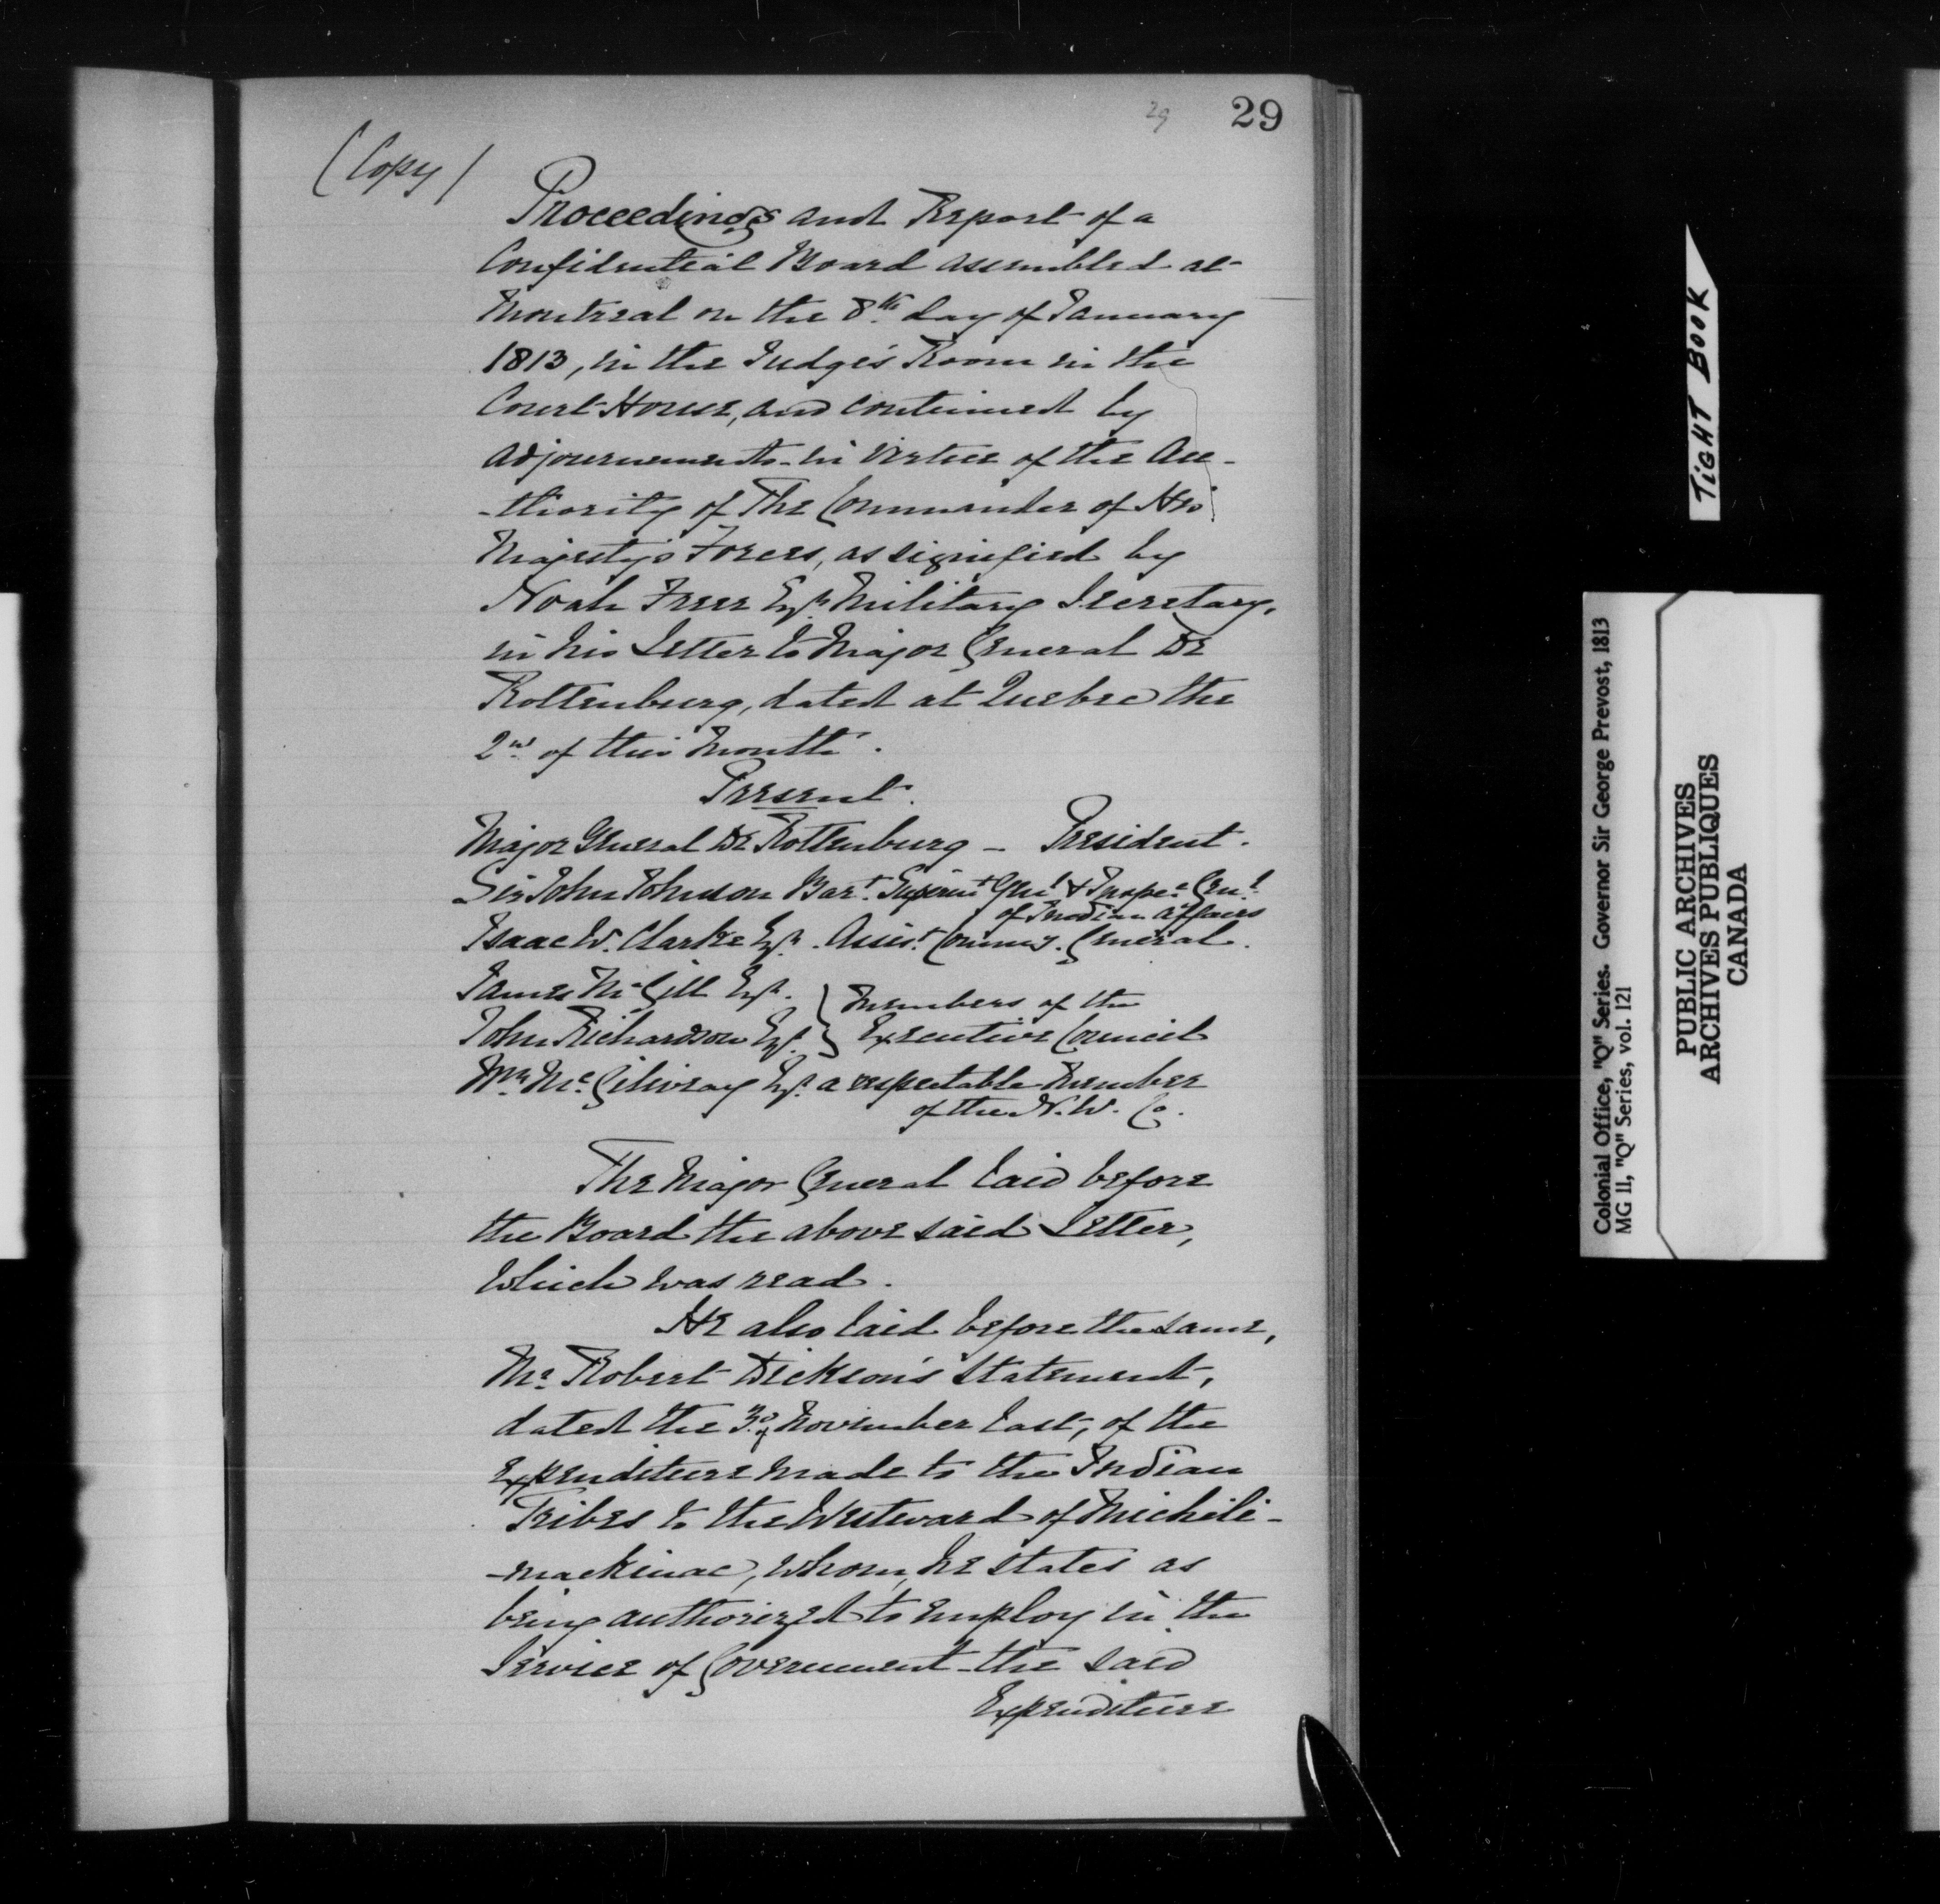 29
29
(Copy)
Proceedings and Report of a
Confidential Board assembled at
Montreal on the 8th day of January
1813, in the Judge's Room in the
Court House, and continued by
adjournments in virtue of the Au-
-thority of The Commander of His
Majesty's Forces, as signified by
Noah Freer Esqr. Military Secretary,
in his Letter to Major General De
Rottenburg, dated at Quebec the
2nd of this Month.
Present.
Major General De Rottenburg — President.
Sir John Johnson Bart. Superint Genl & Inspr. Genl.
of Indian Affairs
Isaac W. Clarke Esqr. Assist. Commy. General.
James McGill Esqr. } Members of the
John Richardson Esqr. } Executive Council
Wm. McGilivray Esqr. a respectable Member
of the N. W. Co.
The Major General laid before
the Board the above said Letter,
which was read.
He also laid before the same,
Mr. Robert Dickson's Statement,
dated the 3d. of November last, of the
Expenditure made to the Indian
Tribes to the Westward of Michili-
-mackinac, whom, he states as
being authorized to employ in the
Service of Government the said
Expenditure
TIGHT BOOK
Colonial Office, "Q" Series. Governor Sir George Prevost, 1813
MG 11, "Q" Series, vol. 121
PUBLIC ARCHIVES
ARCHIVES PUBLIQUES
CANADA